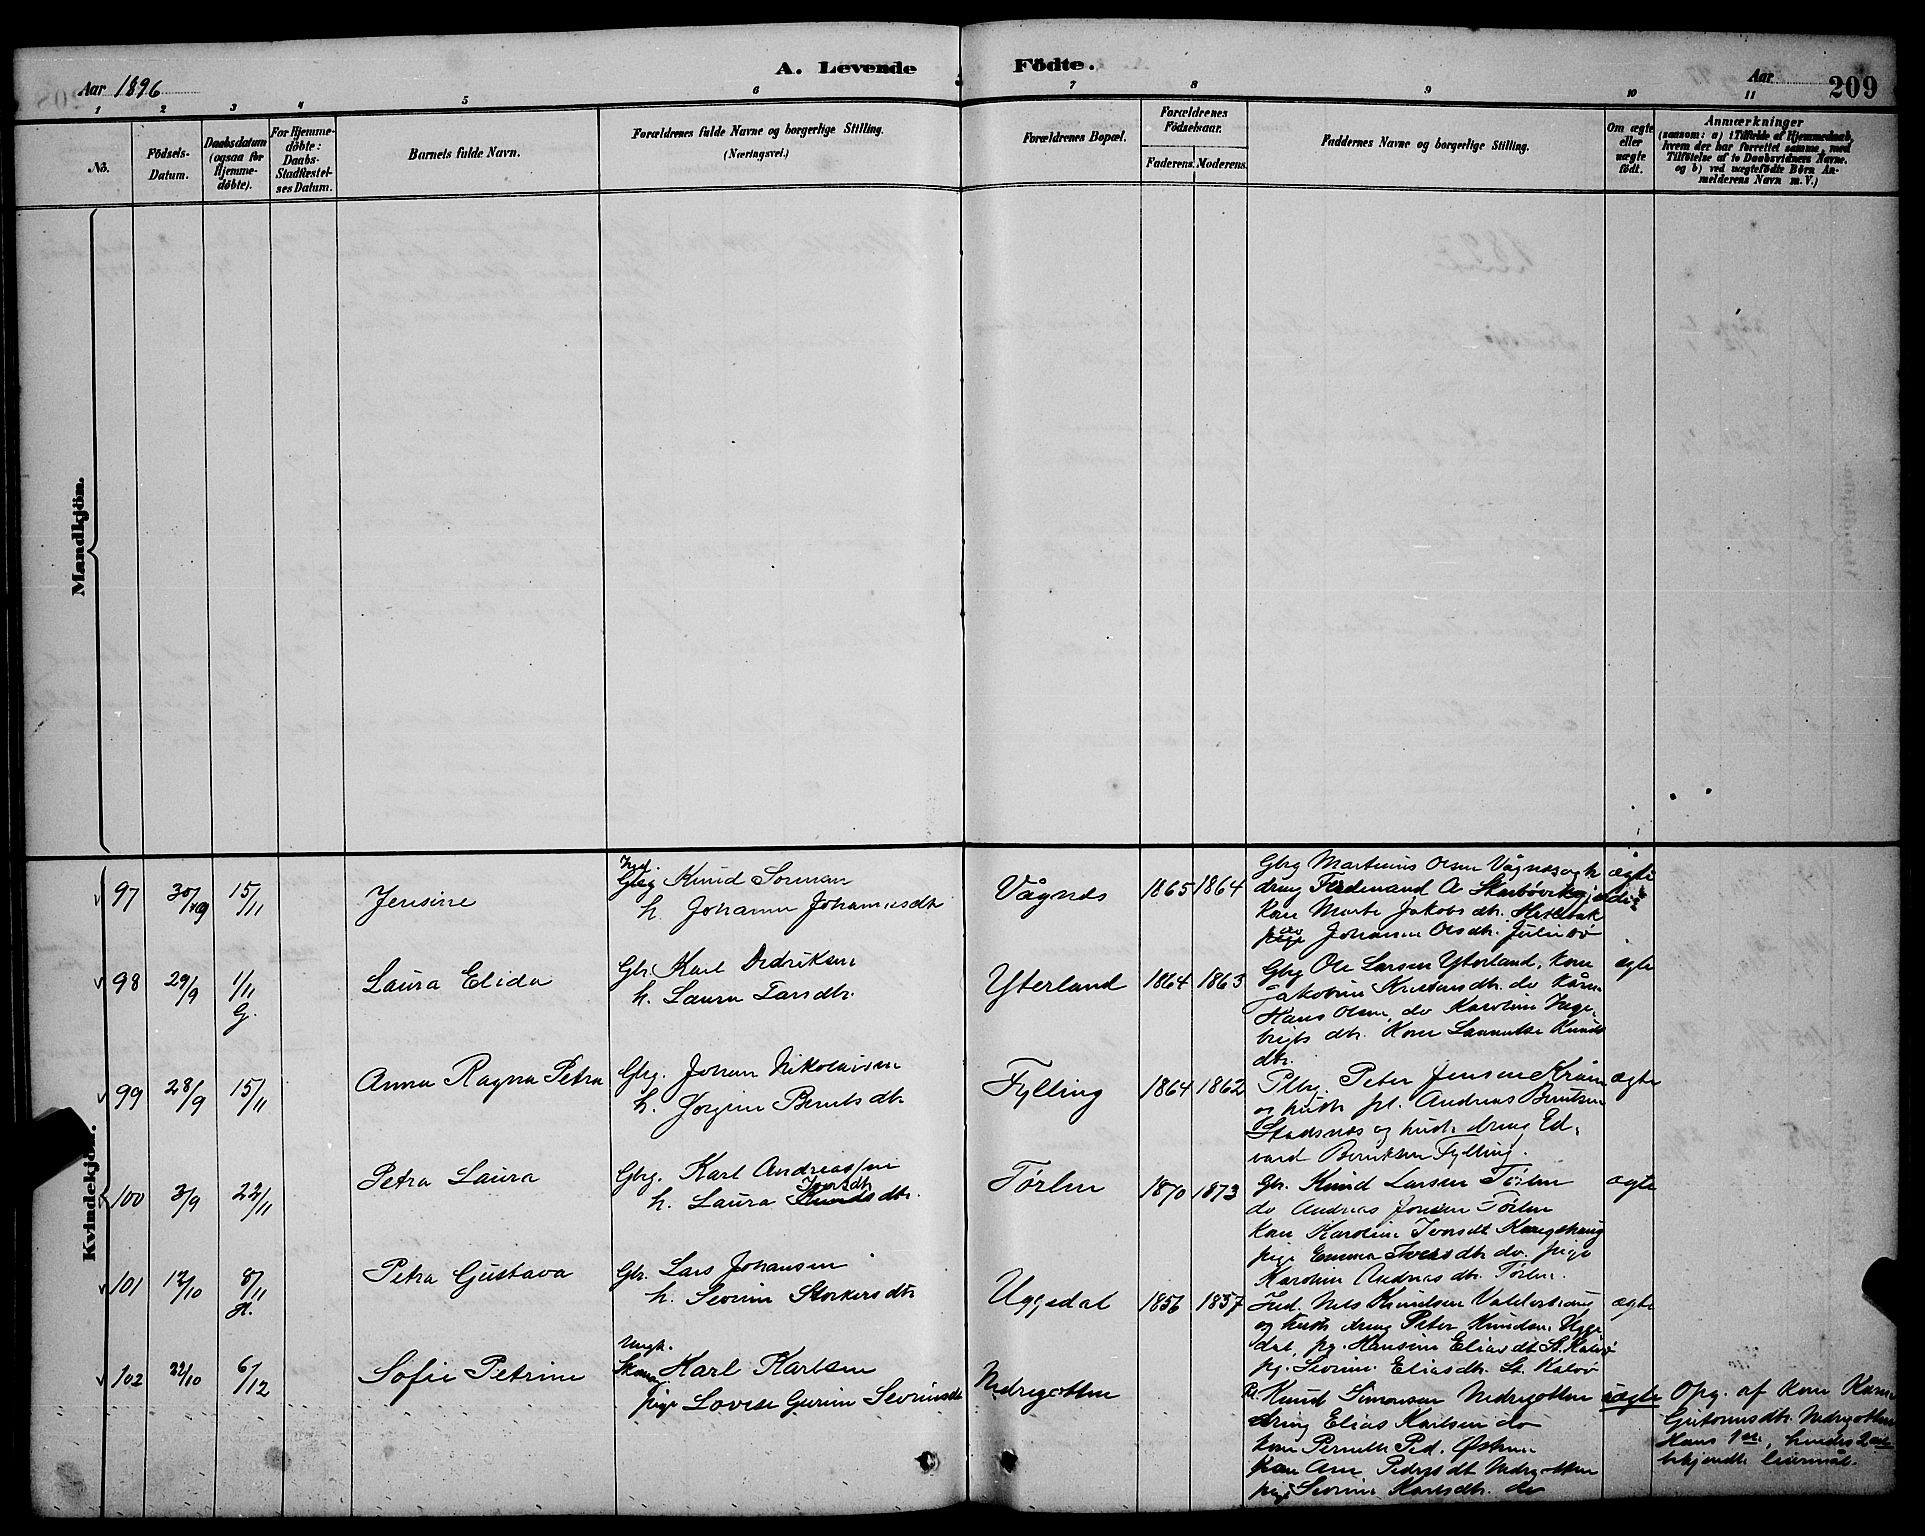 A. Levende Födte.
Aar 1896
Aar
209
1 2 3 4 5 6 7 8 9 10 11
No.
Födsels-Datum.
Daabsdatum (ogsaa for Hjemme-döbte).
For Hjemme-döbte: Daabs-Stadfæstel-ses Datum.
Barnets fulde Navn.
Forældrenes fulde Navne og borgerlige Stilling. (Næringsvei.)
Forældrenes Bopæl.
Forældrenes Födselsaar.
Faderens. Moderens.
Faddernes Navne og borgerlige Stilling.
Om ægte eller uægte födt.
Anmærkninger
(saasom: a) i Tilfælde af Hjemmedaab,
hvem der har forrettet samme, med
Tilföielse af to Daabsvidners Navne.
og b) ved uægtefödte Börn An-
melderens Navn m. V.)
Mandkjön.
Kvindekjön.
97 30/9 15/11 Jensine
Gbrg Knud Sorensen
h. Johanne Johannesdtr
Vågnæs 1865 1864
Gbrg Martinus Olsen Vågnæs og k
dreng Ferdinand A
kone Marte Jakobsdtr.
pige Johanne Olsdtr. Julebø
ægte
98 29/9 1/11 G. Laura Elida
Gbr. Karl Didriksen
h. Laura Larsdtr.
Yterland 1864 1863
Gbrg Ole Larsen Yterland, kone
Jakobine Kristensdtr. do
Hans Olsen do Karoline Inge-
brigts dtr. Kone Knuds
dtr.
ægte
99 28/9 15/11 Anna Ragna Petra
Gbrg. Johan Nikolaisen
h. Jorgine Berntsdtr
Fylling 1864 1862
Peter Jensen
og hustr Andreas Berntsen
Stadsnæs og hust. dreng Ed-
vard Berntsen Fylling.
ægte
100 3/9 22/11 Petra Laura
Gbrg. Karl Andreassen
h. Laura Iversdtr
Tørlen 1870 1873
Gbr. Knud Larsen Tørlen
do Andreas Jonsen Tørlen
kone Karoline Iversdt
pige Emma Iversdtr do. pige
Karoline Andreasdtr. Tørlen.
ægte
101 12/10 8/11 H. Petra Gustava
Gbr. Lars Johansen
h. Severine Storkersdtr
Uggedal 1856 1857
Ind. Nils Knudsen Valderhaug
og hustr dreng Peter Knudsen Ugge-
dal, pg. Hansine Eliasdt St. Kalvø
pg. Severine Eliasdtr. St. Kalvø
ægte
102 22/10 6/12 Sofie Petrine
Ungk. Karl Karlsen
pige Lovise Gurine Severinsdtr
Nedregotten
Knud Simonsen Nedregotten
dreng Elias Karlsen do
kone Pernille Ped. Østrem
kone Ane Pedersdt Nedregotten
pige Severine Karlsdtr. do
uægte
Opg. af kone Karen
Gutormsdtr. Nedregotten
Hans 1ste, hendes 2det
bekjendte leiermål.